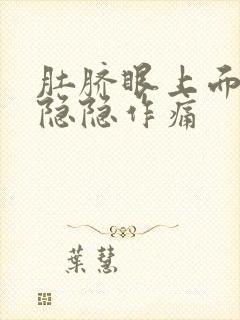 肚脐眼上而
隐隐作痛
葉慧